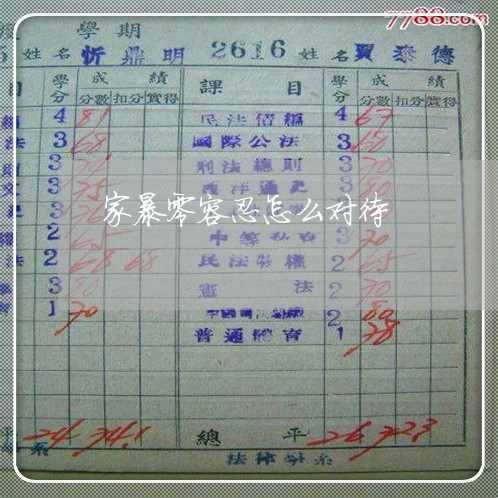 7788.com
學期
5 姓名 忻鼎明 2616 姓名 賈泰德
目 學分 成績 課目 學分 成績
分數 扣分 實得 分數 扣分 實得
4 81 民法債編 4 67
法 3 68 國際公法 3 60
3 刑法總則 3 70
3 75 西洋通史 3
3
家暴零容忍怎么对待
2 65 3 70
法 2 68 68 民法物權 2 65
3 80 憲法 2 70
1 70 2 80
普通體育 1 78
平 24 74.1 總平 26 72.3
系 法律學系